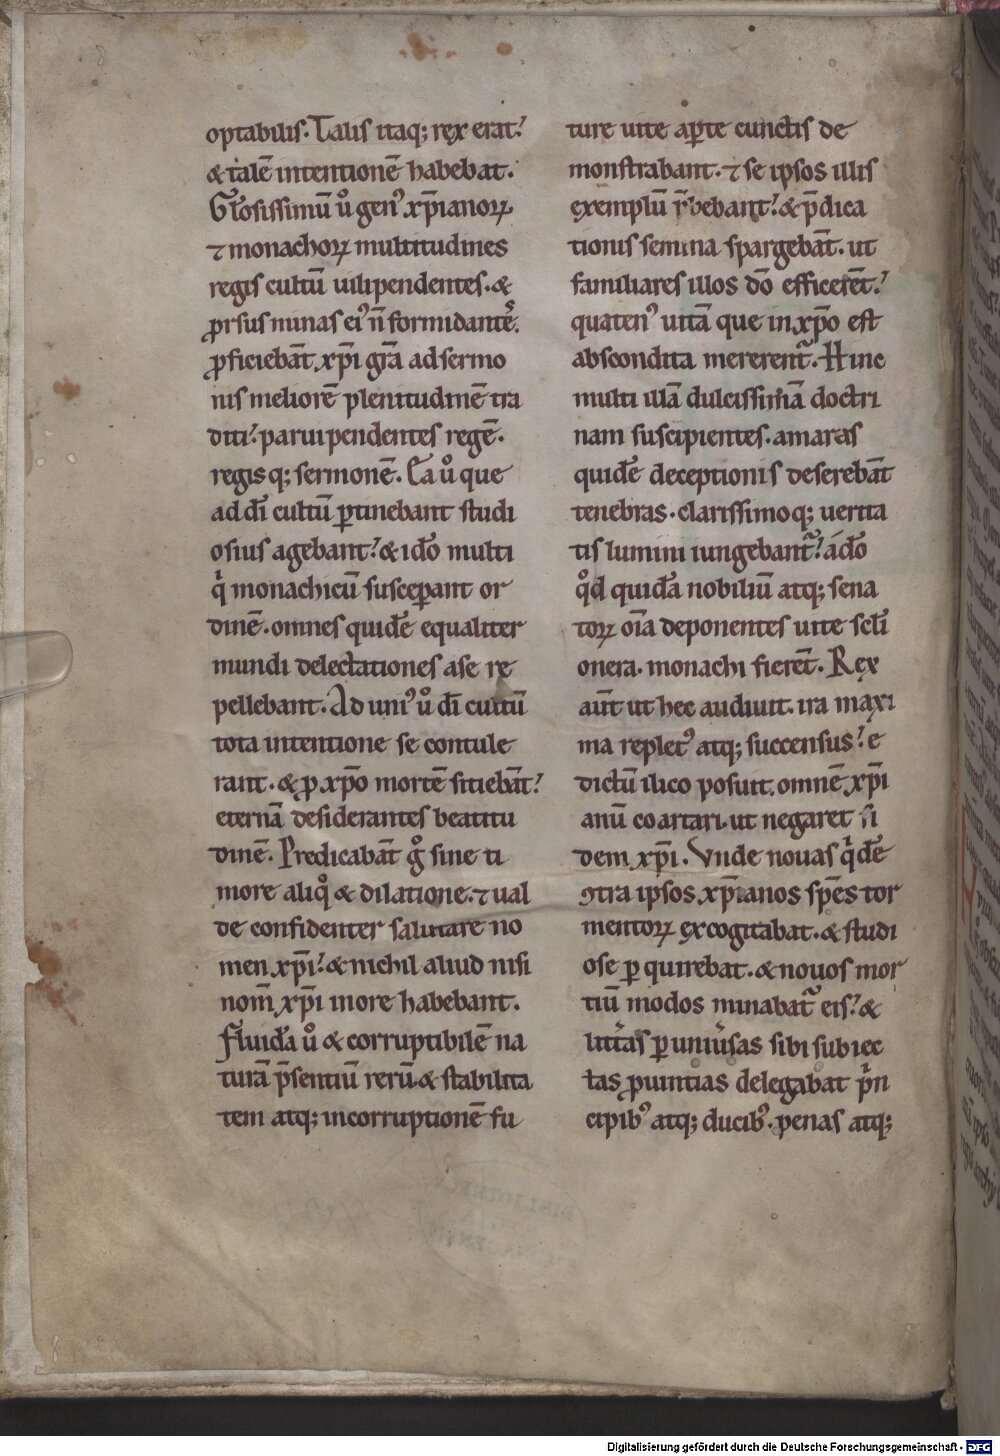 optabilis. Talis itaq; rex erat.
& talē intentionē habebat.
Gl̄osissimū ů gen⁹ xp̄ianoꝝ
⁊ monachoꝝ multitudines
regis cultū uilipendentes. &
ꝓrsus minas ei⁹ n̄ formidantes.
ꝓficiebāt xp̄i gr̄a ad sermo
nis meliorē plenitudinē tra
diti. paruipendentes regē.
regisq; sermonē. Ea ů que
ad dī cultū ꝑtinebant studi
osius agebant. & idō multi
q̇ monachicū susceꝑant or
dinē. omnes quidē equaliter
mundi delectationes a se re
pellebant. Ad uni⁹ ů dī cultū
tota intentione se contule
rant. & ꝓ xp̄o mortē sitiebāt.
eternā desiderantes beatitu
dinē. Predicabāt g̊ sine ti
more aliq̊ & dilatione. ⁊ ual
de confidenter salutare no
men xp̄i. & nichil aliud nisi
nom̄ xp̄i in ore habebant.
Fluidā ů & corruptibilē na
turā p̄sentiū rerū. & stabilita
tem atq; incorruptionē fu
ture uite aꝑte cunctis de
monstrabant. ⁊ se ipsos illis
exemplū p̄bebant. & p̄dica
tionis semina spargebāt. ut
familiares illos dō efficerēt.
quaten⁹ uitā que in xp̄o est
abscondita mererent̄. Hinc
multi illā dulcissimā doctri
nam suscipientes. amaras
quidē deceptionis deserebāt
tenebras. clarissimoq; uerita
tis lumini iungebant̄. ádō
q̊d quidā nobiliū atq; sena
toꝝ oīa deponentes uite sc̄li
onera. monachi fierēt. Rex
aūt ut hec audiuit. ira maxi
ma replet⁹ atq; succensus. e
dictū ilico posuit. omnē xp̄i
anū coartari. ut negaret fi
dem xp̄i. Vnde nouas q̇dē
ꝯtra ipsos xp̄ianos sp̄es tor
mentoꝝ excogitabat. & studi
ose ꝑquirebat. & nouos mor
tiū modos minabat̄ eis. &
litt̄as ꝑ uniu̾sas sibi subiec
tas ꝓuintias delegabat ṗn
cipib⁹ atq; ducib⁹. penas atq;